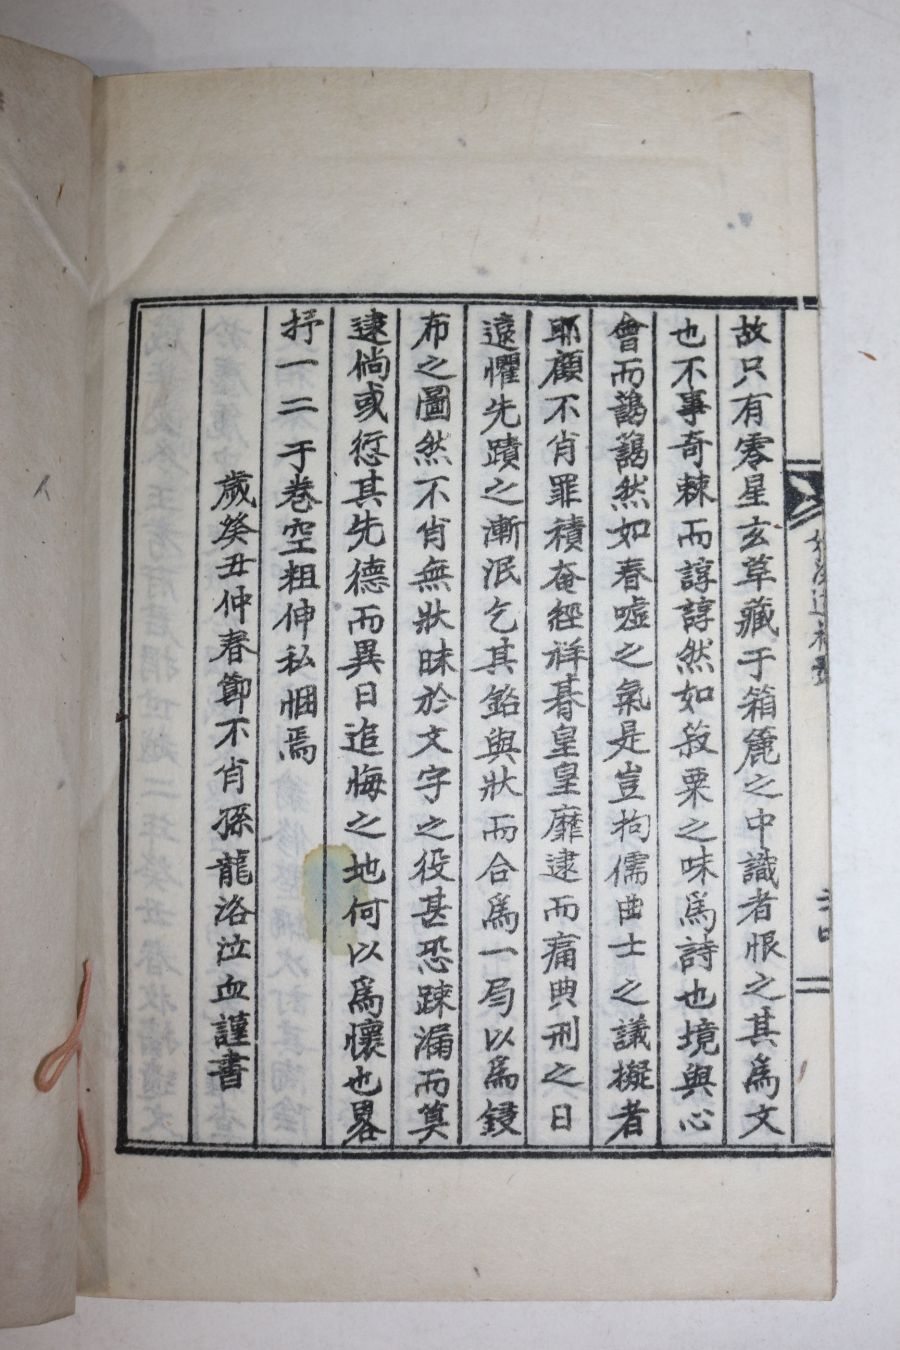 故只有零星玄草藏于箱簏之中識者恨之其爲文
也不事奇棘而諄諄然如菽粟之味爲詩也境與心
會而藹藹然如春噓之氣是豈拘儒曲士之議擬者
耶顧不肖罪積奄經祥朞皇皇靡逮而痛典刑之日
遠懼先蹟之漸泯乞其銘與狀而合爲一局以爲鋟
布之圖然不肖無狀昧於文字之役甚恐踈漏而莫
逮倘或愆其先德而異日追悔之地何以爲懷也畧
抒一二于卷空粗伸私悃焉
歲癸丑仲春節不肖孫龍洛泣血謹書